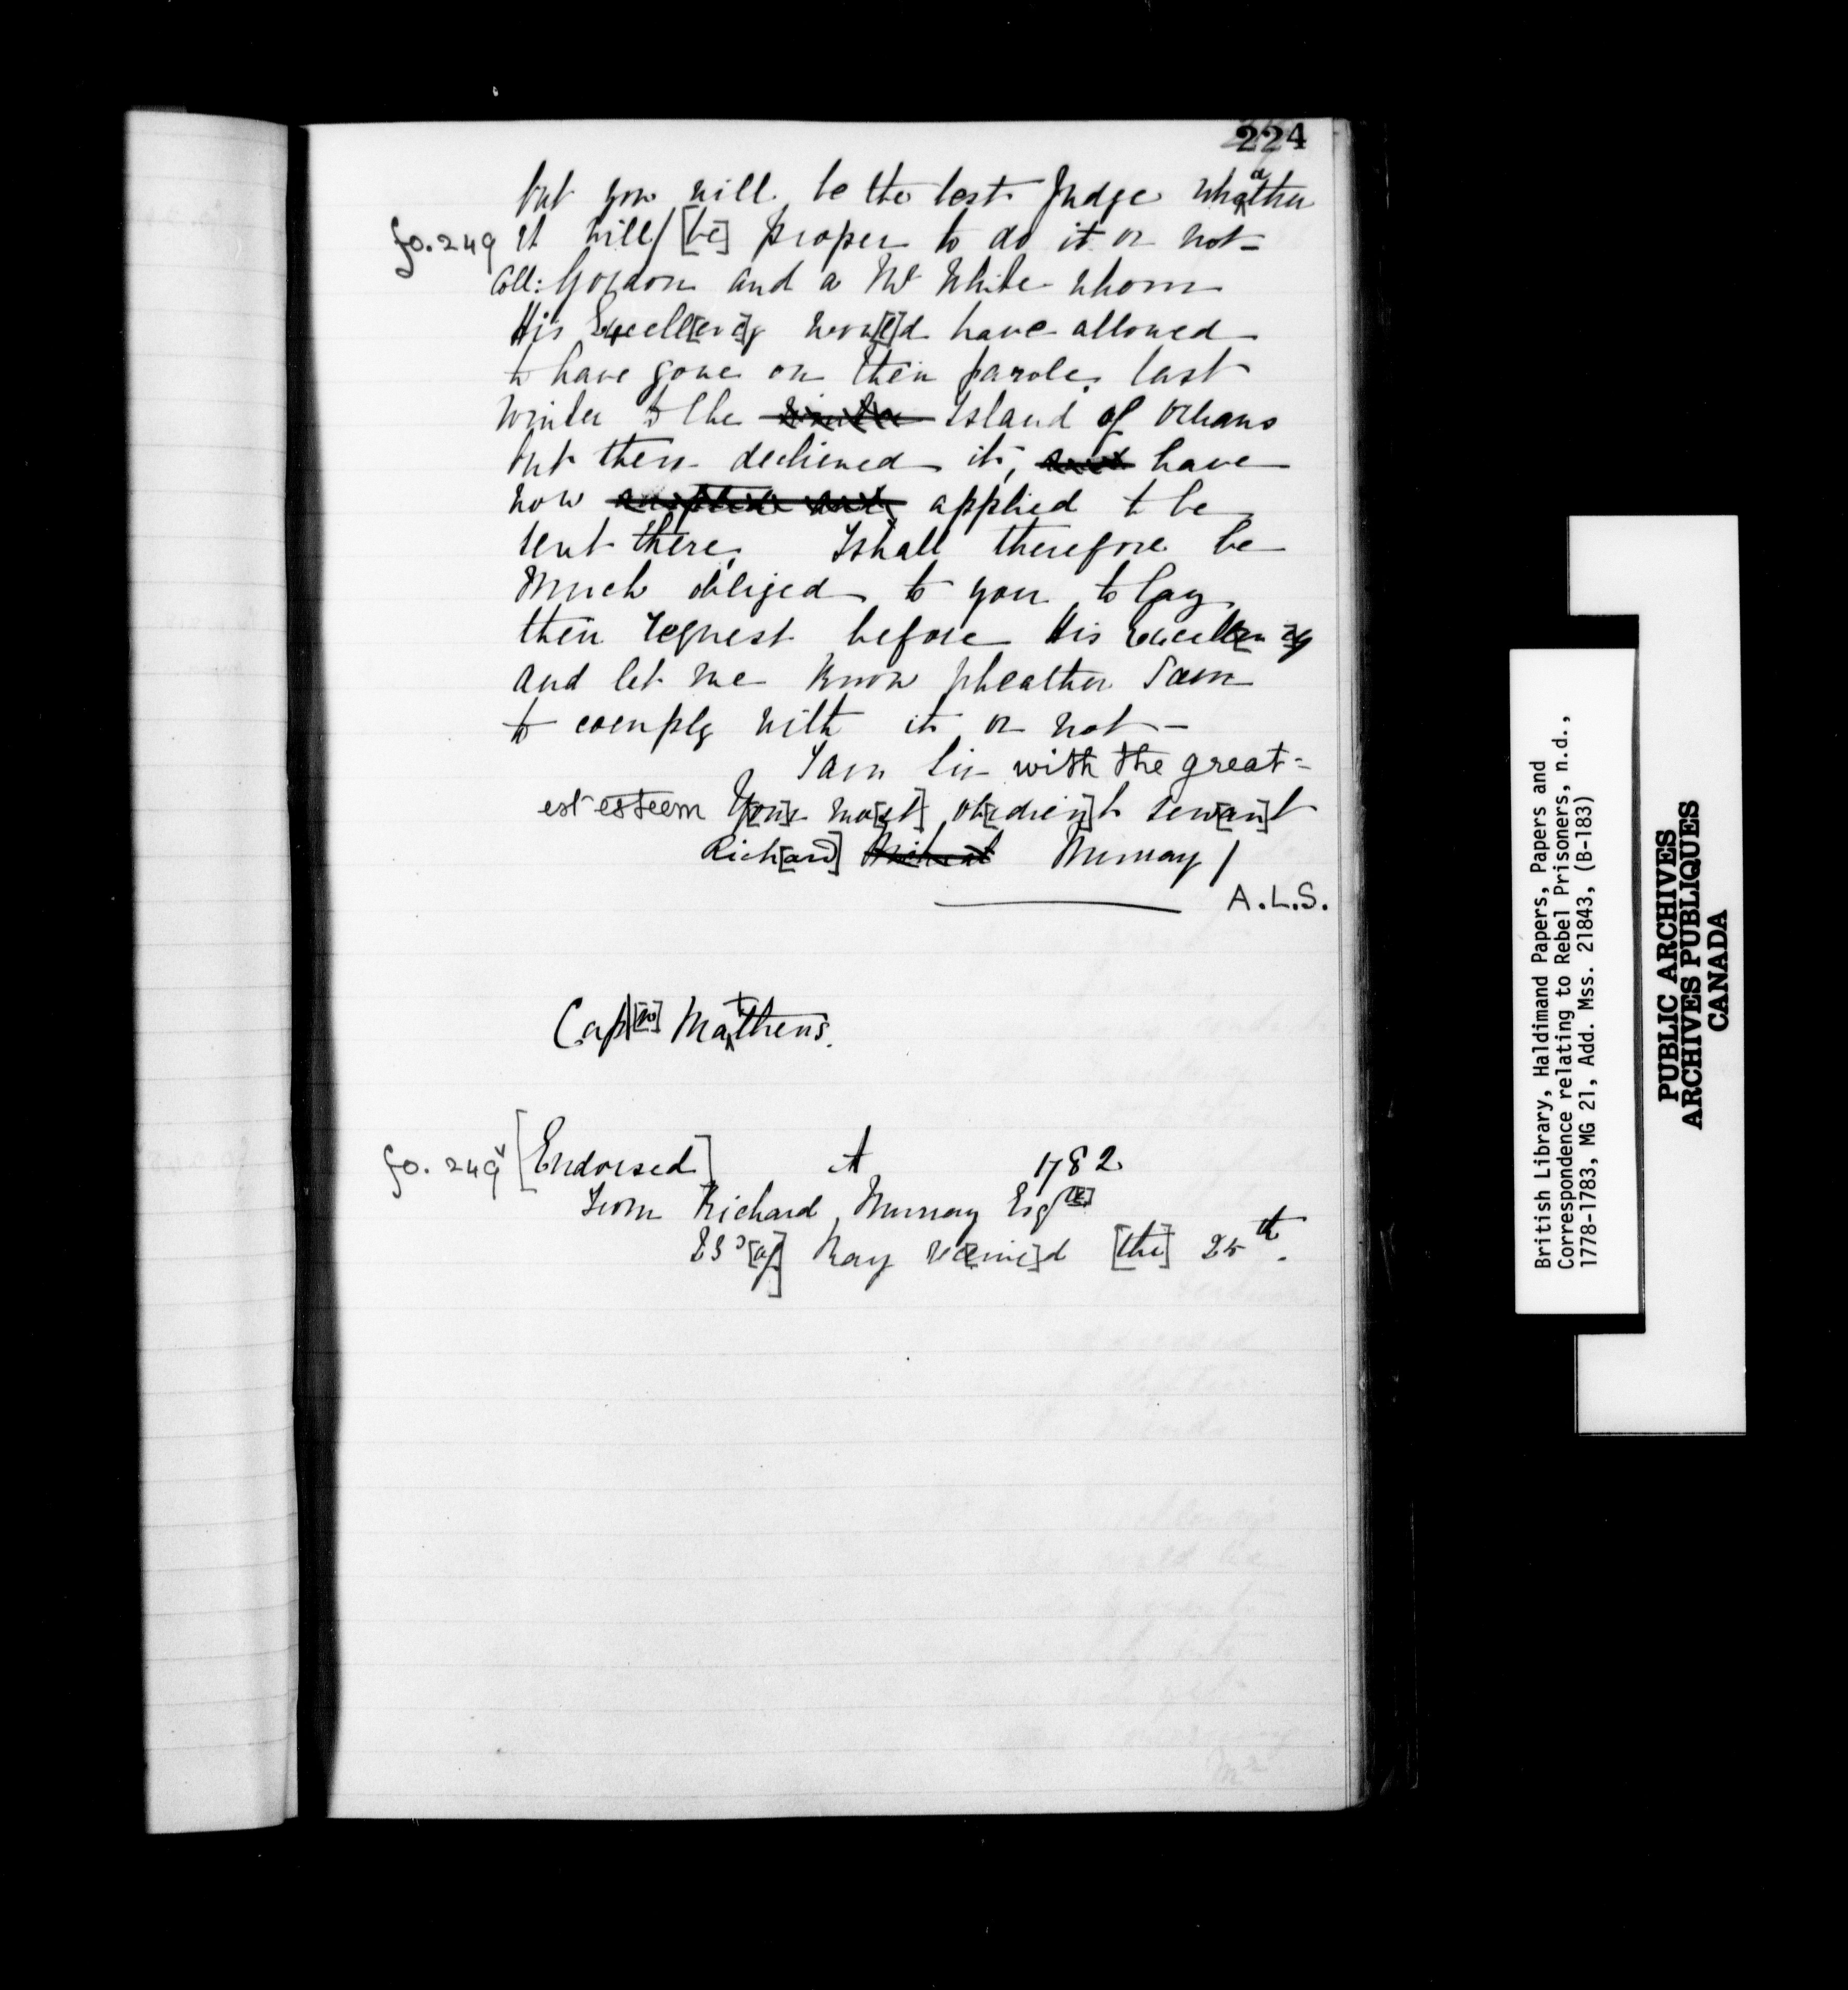 224
but you will be the best Judge wheather
fo. 249 it will/ [be] proper to do it or not-
Coll: Gordon and a Mr White whom
His Excell[enc]y wou[l]d have allowed
to have gone on their parole, last
Winter to the Island of Orleans
but then declined it, have
now applied to be
sent there, I shall therefore be
Much obliged to you to lay
their request before His Excell[en]cy
and let me know wheather I am
to comply with it or not -
I am Sir with the great-
est esteem You[r] mo[st] ob[edien]t serv[an]t
Rich[ard] Murray /
A.L.S.
Cap[n] Matthews.
fo. 249v [Endorsed] A 1782
From Richard Murray Esq[re]
23d [of] May rec[eive]d [the] 25th.
British Library, Haldimand Papers, Papers and
Correspondence relating to Rebel Prisoners, n.d.,
1778-1783, MG 21, Add. Mss. 21843, (B-183)
PUBLIC ARCHIVES
ARCHIVES PUBLIQUES
CANADA